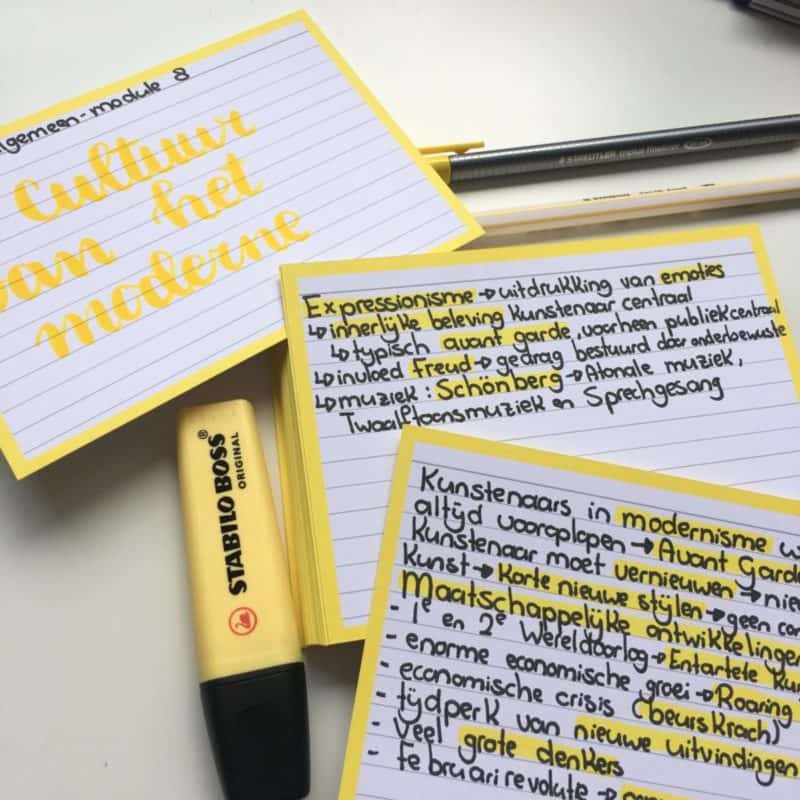 algemeen-module 8
Cultuur
van het
moderne
STAEDTLER triplus fineliner
STABILO BOSS®
ORIGINAL
Expressionisme → uitdrukking van emoties
↳ innerlijke beleving kunstenaar centraal
↳ typisch avant garde, voorheen publiek centraal
↳ invloed Freud → gedrag bestuurd door onderbewuste
↳ muziek: Schönberg → Atonale muziek,
Twaalftoonsmuziek en Sprechgesang
Kunstenaars in modernisme w
altijd vooroplopen → Avant Garde
Kunstenaar moet vernieuwen → nie
Kunst → Korte nieuwe stijlen → geen con
Maatschappelijke ontwikkelingen
- 1e en 2e Wereldoorlog → Entartete Kun
- enorme economische groei → Roaring
- economische crisis (beurskrach)
- tijdperk van nieuwe uitvindingen
- Veel grote denkers
- Februari revolutie →